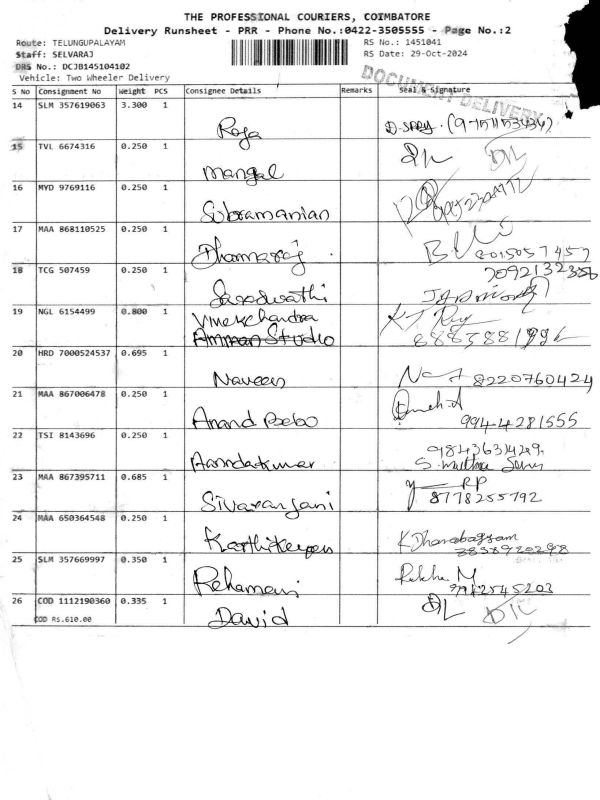 THE PROFESSIONAL COURIERS, COIMBATORE
Delivery Runsheet - PRR - Phone No.:0422-3505555 - Page No.:2
Route: TELUNGUPALAYAM RS No.: 1451041
Staff: SELVARAJ RS Date: 29-Oct-2024
DRS No.: DCJB145104102
Vehicle: Two Wheeler Delivery
DOCUMENT DELIVERY
S No Consignment No Weight PCS Consignee Details Remarks Seal & Signature
14 SLM 357619063 3.300 1
Roja
15 TVL 6674316 0.250 1 DL DL
Mangal
16 MYD 9769116 0.250 1
Subramanian
17 MAA 868110525 0.250 1
Dhamaraj 8015057457
18 TCG 507459 0.250 1
Saraswathi
19 NGL 6154499 0.800 1
Amman Studio
20 HRD 7000524537 0.695 1
Naveen 8220760424
21 MAA 867006478 0.250 1
Anand Babo 9944281555
22 TSI 8143696 0.250 1
23 MAA 867395711 0.685 1 RP
Sivaranjani 8778255792
24 MAA 650364548 0.250 1
Karthikeyan
25 SLM 357669997 0.350 1 Rekha M
26 COD 1112190360 0.335 1 DL DL
COD RS.610.00 David